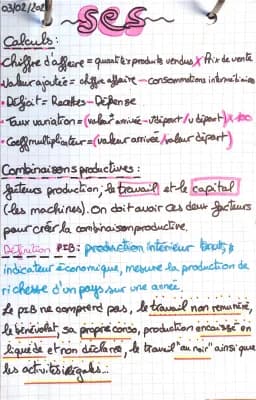 03/02/202
SES
Calculs :
Chiffre d'affaire = quantités produits vendus X Prix de vente
• Valeur ajoutée = chiffre affaire - consommations intermédiaires
• Déficit = Recettes - Dépense
• Taux variation = (valeur arrivée - V départ / V départ) x 100
• Coeff multiplicateur = (valeur arrivée / valeur départ)
Combinaisons productives :
facteurs production ; le travail et le capital
(les machines). On doit avoir ces deux facteurs
pour créer la combinaison productive.
Définition PIB : production intérieur brut, +
indicateur économique, mesure la production de
richesse d'un pays sur une année.
Le PIB ne comprend pas, le travail non rémunéré,
le bénévolat, sa propre conso, production encaissé en
liquide et non déclaré, le travail "au noir" ainsi que
les activités illégales...